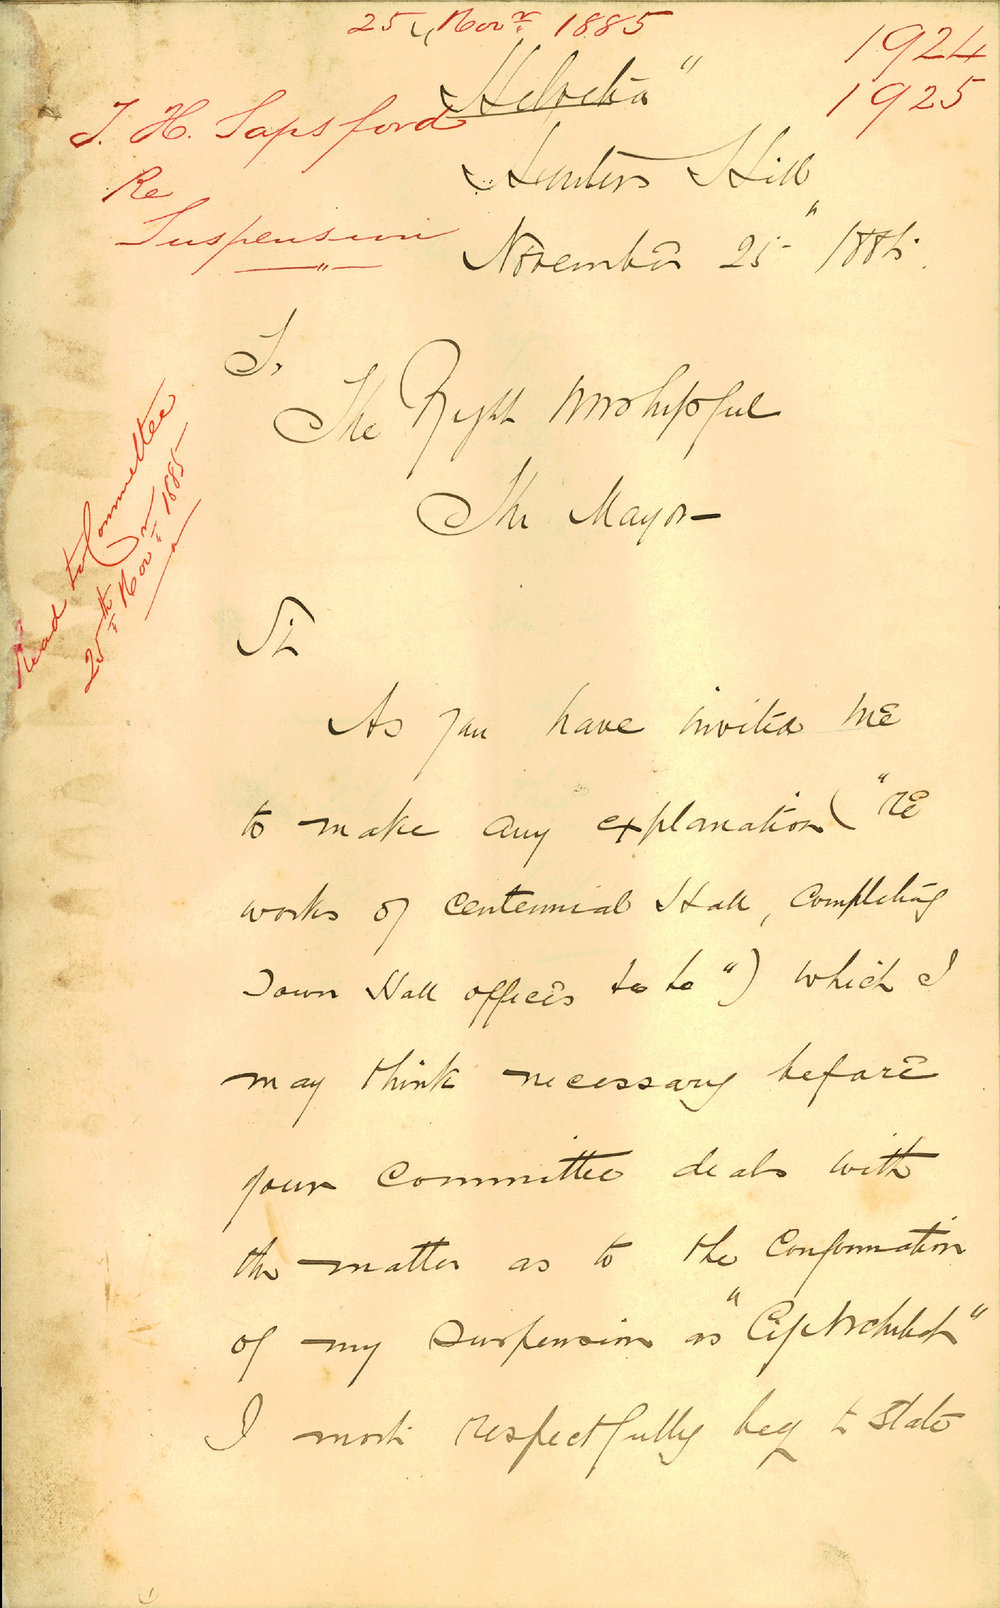 25 Novr 1885
1924
1925
T. H. Sapsford
Re
Suspension
"Helvetia"
Hunters Hill
November 25" 1885.
To
The Right Worshipful
The Mayor
Read to Committee
25th Novr 1885
Sir
As you have invited me
to make any explanation ("re
works of Centennial Hall, completing
Town Hall offices &c &c") which I
may think necessary before
your Committee deals with
the matter as to the Confirmation
of my suspension as "City Architect"
I most respectfully beg to state